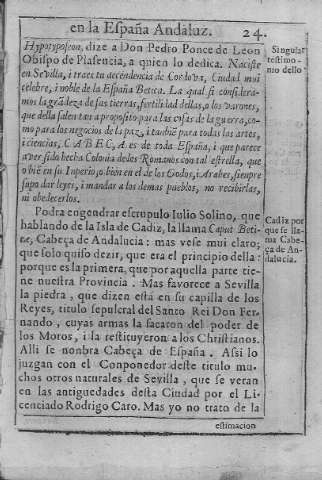 en la España Andaluz.
24.
Hypotyposeon, dize a Don Pedro Ponce de Leon
Obispo de Plasencia, a quien lo dedica. Naciste
en Sevilla, i traes tu decendencia de Cordova, Ciudad mui
celebre, i noble de la España Betica. La qual si considera-
mos la grãdeza de sus tierras, fertilidad dellas, a los varones,
que della salen tan a proposito para las cosas de la guerra, co-
mo para los negocios de la paz, i tambiẽ para todas las artes,
i ciencias, CABEÇA es de toda España, i que parece
aver sido hecha Colonia de los Romanos con tal estrella, que
o biẽ en su Inperio, o bien en el de los Godos, i Arabes, siempre
supo dar leyes, i mandar a los demas pueblos, no recibirlas,
ni obedecerlos.
Singular
testimo-
nio dello
Podra engendrar escrupulo Iulio Solino, que
hablando de la Isla de Cadiz, la llama Caput Beti-
ne, Cabeça de Andalucia: mas vese mui claro;
que solo quiso dezir, que era el principio della:
porque es la primera, que por aquella parte tie-
ne nuestra Provincia. Mas favorece a Sevilla
la piedra, que dizen está en su capilla de los
Reyes, titulo sepulcral del Santo Rei Don Fer-
nando, cuyas armas la sacaron del poder de
los Moros, i la restituyeron a los Christianos.
Alli se nonbra Cabeça de España. Assi lo
juzgan con el Conponedor deste titulo mu-
chos otros naturales de Sevilla, que se veran
en las antiguedades desta Ciudad por el Li-
cenciado Rodrigo Caro. Mas yo no trato de la
Cadiz por
que se lla-
ma Cabe-
ça de An-
dalucia.
estimacion